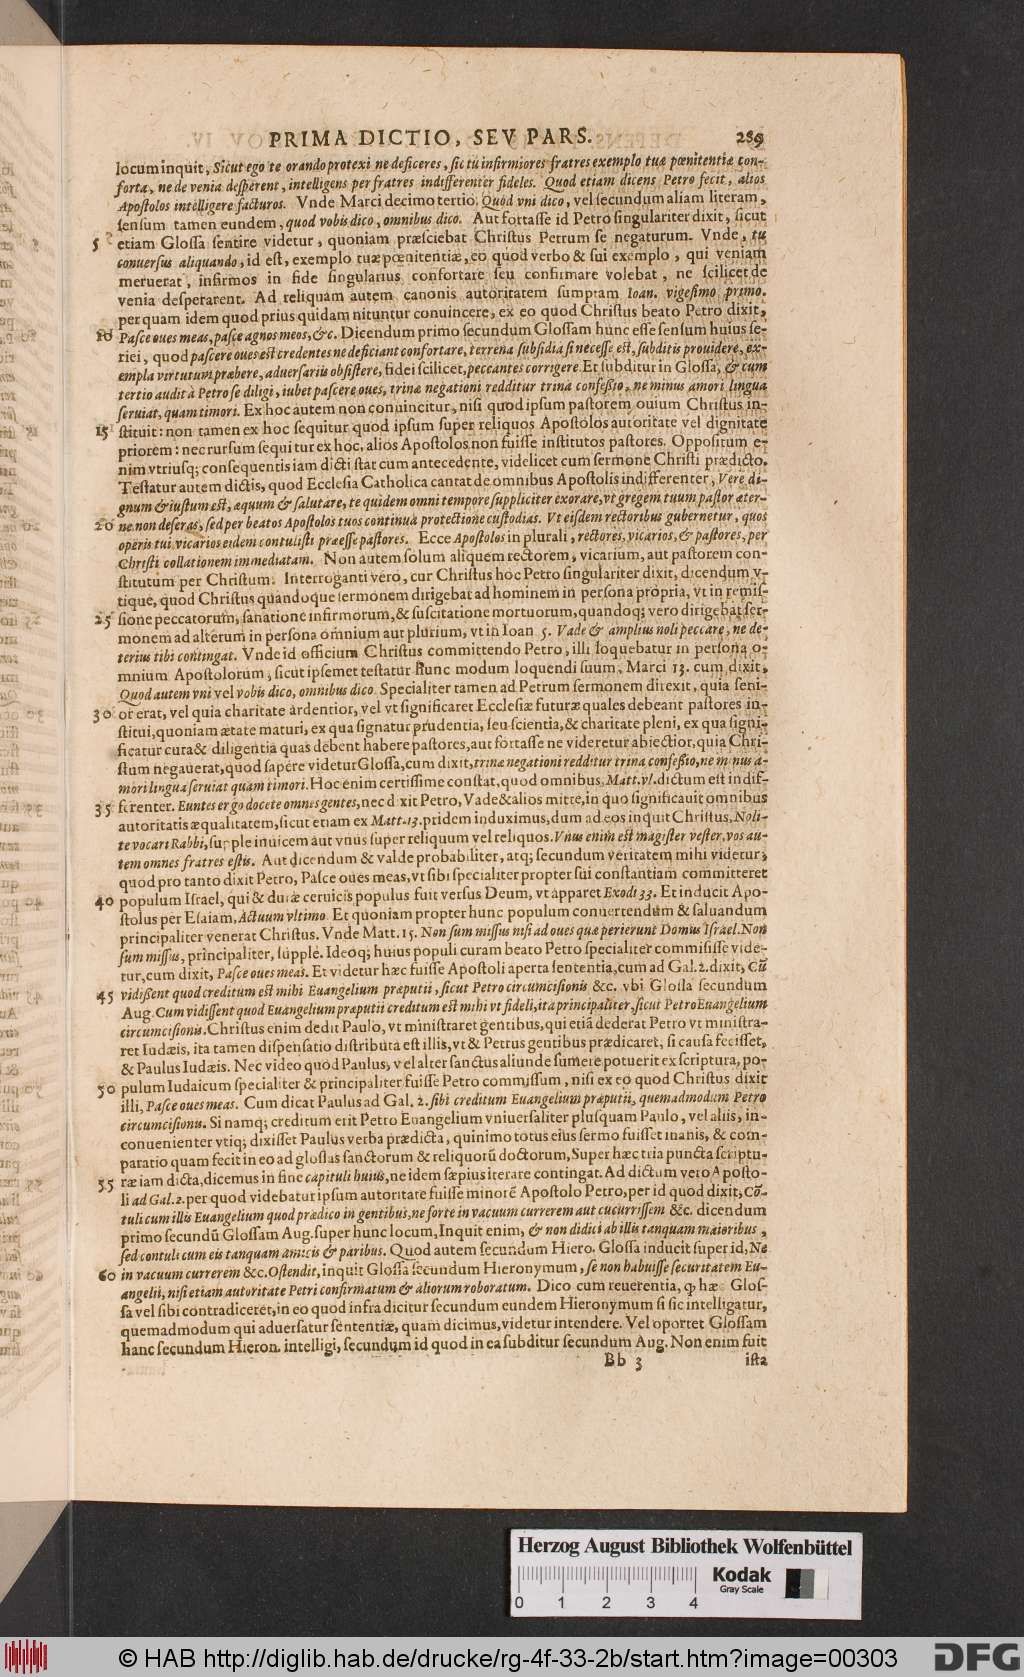 PRIMA DICTIO, SEV PARS. 289
locum inquit, Sicut ego te orando protexi ne deficeres, sic tu infirmiores fratres exemplo tuæ pœnitentiæ con-
forta, ne de venia desperent, intelligens per fratres indifferenter fideles. Quod etiam dicens Petro fecit, alios
Apostolos intelligere facturos. Vnde Marci decimo tertio. Quod vni dico, vel secundum aliam literam,
sensum tamen eundem, quod vobis dico, omnibus dico. Aut fortasse id Petro singulariter dixit, sicut
5 etiam Glossa sentire videtur, quoniam præsciebat Christus Petrum se negaturum. Vnde, tu
conuersus aliquando, id est, exemplo tuæ pœnitentiæ, eo quod verbo & sui exemplo, qui veniam
meruerat, infirmos in fide singularius confortare seu confirmare volebat, ne scilicet de
venia desperarent. Ad reliquam autem canonis autoritatem sumptam Ioan. vigesimo primo.
per quam idem quod prius quidam nituntur conuincere, ex eo quod Christus beato Petro dixit,
10 Pasce oues meas, pasce agnos meos, &c. Dicendum primo secundum Glossam hunc esse sensum huius se-
riei, quod pascere oues est credentes ne deficiant confortare, terrena subsidia si necesse est, subditis prouidere, ex-
empla virtutum præbere, aduersariis obsistere, fidei scilicet, peccantes corrigere. Et subditur in Glossa, & cum
tertio audit à Petro se diligi, iubet pascere oues, trinæ negationi redditur trina confessio, ne minus amori lingua
seruiat, quam timori. Ex hoc autem non conuincitur, nisi quod ipsum pastorem ouium Christus in-
15 stituit: non tamen ex hoc sequitur quod ipsum super reliquos Apostolos autoritate vel dignitate
priorem: nec rursum sequitur ex hoc, alios Apostolos non fuisse institutos pastores. Oppositum e-
nim vtriusq; consequentis iam dicti stat cum antecedente, videlicet cum sermone Christi prædicto.
Testatur autem dictis, quod Ecclesia Catholica cantat de omnibus Apostolis indifferenter, Vere di-
gnum & iustum est, æquum & salutare, te quidem omni tempore suppliciter exorare, vt gregem tuum pastor æter-
20 ne non deseras, sed per beatos Apostolos tuos continua protectione custodias. Vt eisdem rectoribus gubernetur, quos
operis tui vicarios eidem contulisti præesse pastores. Ecce Apostolos in plurali, rectores, vicarios, & pastores, per
Christi collationem immediatam. Non autem solum aliquem rectorem, vicarium, aut pastorem con-
stitutum per Christum. Interroganti vero, cur Christus hoc Petro singulariter dixit, dicendum v-
tique, quod Christus quandoque sermonem dirigebat ad hominem in persona propria, vt in remis-
25 sione peccatorum, sanatione infirmorum, & suscitatione mortuorum, quandoq; vero dirigebat ser-
monem ad alterum in persona omnium aut plurium, vt in Ioan 5. Vade & amplius noli peccare, ne de-
terius tibi contingat. Vnde id officium Christus committendo Petro, illi loquebatur in persona o-
mnium Apostolorum, sicut ipsemet testatur hunc modum loquendi suum, Marci 13. cum dixit,
Quod autem vni vel vobis dico, omnibus dico. Specialiter tamen ad Petrum sermonem direxit, quia seni-
30 or erat, vel quia charitate ardentior, vel vt significaret Ecclesiæ futuræ quales debeant pastores in-
stitui, quoniam ætate maturi, ex qua signatur prudentia, seu scientia, & charitate pleni, ex qua signi-
ficatur cura & diligentia quas debent habere pastores, aut fortasse ne videretur abiectior, quia Chri-
stum negauerat, quod sapere videtur Glossa, cum dixit, trinæ negationi redditur trina confessio, ne minus a-
mori lingua seruiat quam timori. Hoc enim certissime constat, quod omnibus, Matt. vl. dictum est indif-
35 ferenter. Euntes ergo docete omnes gentes, nec dixit Petro, Vade & alios mitte, in quo significauit omnibus
autoritatis æqualitatem, sicut etiam ex Matt. 23. pridem induximus, dum ad eos inquit Christus, Noli-
te vocari Rabbi, supple inuicem aut vnus super reliquum vel reliquos. Vnus enim est magister vester, vos au-
tem omnes fratres estis. Aut dicendum & valde probabiliter, atq; secundum veritatem mihi videtur,
quod pro tanto dixit Petro, Pasce oues meas, vt sibi specialiter propter sui constantiam committeret
40 populum Israel, qui & duræ ceruicis populus fuit versus Deum, vt apparet Exodi 33. Et inducit Apo-
stolus per Esaiam, Actuum vltimo. Et quoniam propter hunc populum conuertendum & saluandum
principaliter venerat Christus. Vnde Matt. 15. Non sum missus nisi ad oues quæ perierunt Domus Israel. Non
sum missus, principaliter, supple. Ideoq; huius populi curam beato Petro specialiter commisisse vide-
tur, cum dixit, Pasce oues meas. Et videtur hæc fuisse Apostoli aperta sententia, cum ad Gal. 2. dixit, Cũ
45 vidissent quod creditum est mihi Euangelium præputii, sicut Petro circumcisionis &c. vbi Glossa secundum
Aug. Cum vidissent quod Euangelium præputii creditum est mihi vt fideli, ita principaliter, sicut Petro Euangelium
circumcisionis. Christus enim dedit Paulo, vt ministraret gentibus, qui etiã dederat Petro vt ministra-
ret Iudæis, ita tamen dispensatio distributa est illis, vt & Petrus gentibus prædicaret, si causa fecisset,
& Paulus Iudæis. Nec video quod Paulus, vel alter sanctus aliunde sumere potuerit ex scriptura, po-
50 pulum Iudaicum specialiter & principaliter fuisse Petro commissum, nisi ex eo quod Christus dixit
illi, Pasce oues meas. Cum dicat Paulus ad Gal. 2. sibi creditum Euangelium præputii, quemadmodum Petro
circumcisionis. Si namq; creditum erit Petro Euangelium vniuersaliter plusquam Paulo, vel aliis, in-
conuenienter vtiq; dixisset Paulus verba prædicta, quinimo totus eius sermo fuisset inanis, & com-
paratio quam fecit in eo ad glossas sanctorum & reliquorũ doctorum, Super hæc tria puncta scriptu-
55 ræ iam dicta, dicemus in fine capituli huius, ne idem sæpius iterare contingat. Ad dictum vero Aposto-
li ad Gal. 2. per quod videbatur ipsum autoritate fuisse minorẽ Apostolo Petro, per id quod dixit, Cõ-
tuli cum illis Euangelium quod prædico in gentibus, ne forte in vacuum currerem aut cucurrissem &c. dicendum
primo secundũ Glossam Aug. super hunc locum, Inquit enim, & non didici ab illis tanquam maioribus,
sed contuli cum eis tanquam amicis & paribus. Quod autem secundum Hiero. Glossa inducit super id, Ne
60 in vacuum currerem &c. Ostendit, inquit Glossa secundum Hieronymum, se non habuisse securitatem Eu-
angelii, nisi etiam autoritate Petri confirmatum & aliorum roboratum. Dico cum reuerentia, ꝙ hæc Glos-
sa vel sibi contradiceret, in eo quod infra dicitur secundum eundem Hieronymum si sic intelligatur,
quemadmodum qui aduersatur sententiæ, quam dicimus, videtur intendere. Vel oportet Glossam
hanc secundum Hieron. intelligi, secundum id quod in ea subditur secundum Aug. Non enim fuit
Bb 3 ista
Herzog August Bibliothek Wolfenbüttel
Kodak
Gray Scale
0 1 2 3 4
© HAB http://diglib.hab.de/drucke/rg-4f-33-2b/start.htm?image=00303
DFG